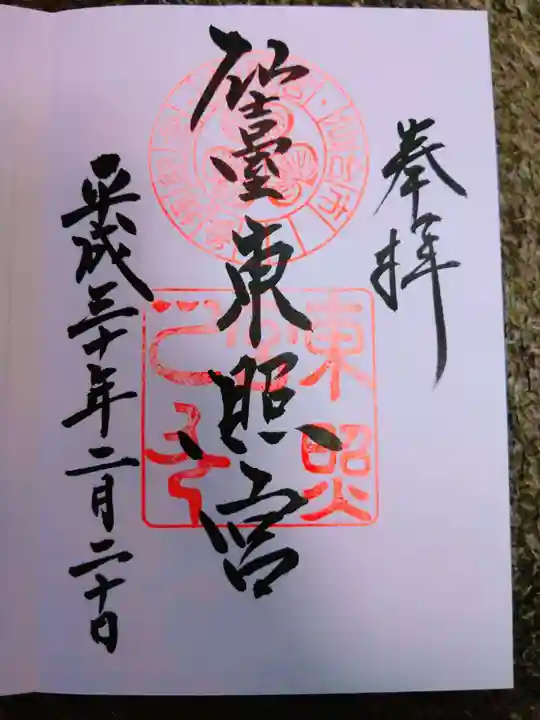 奉拝
仙臺東照宮
平成三十年二月二十日
東照
宮